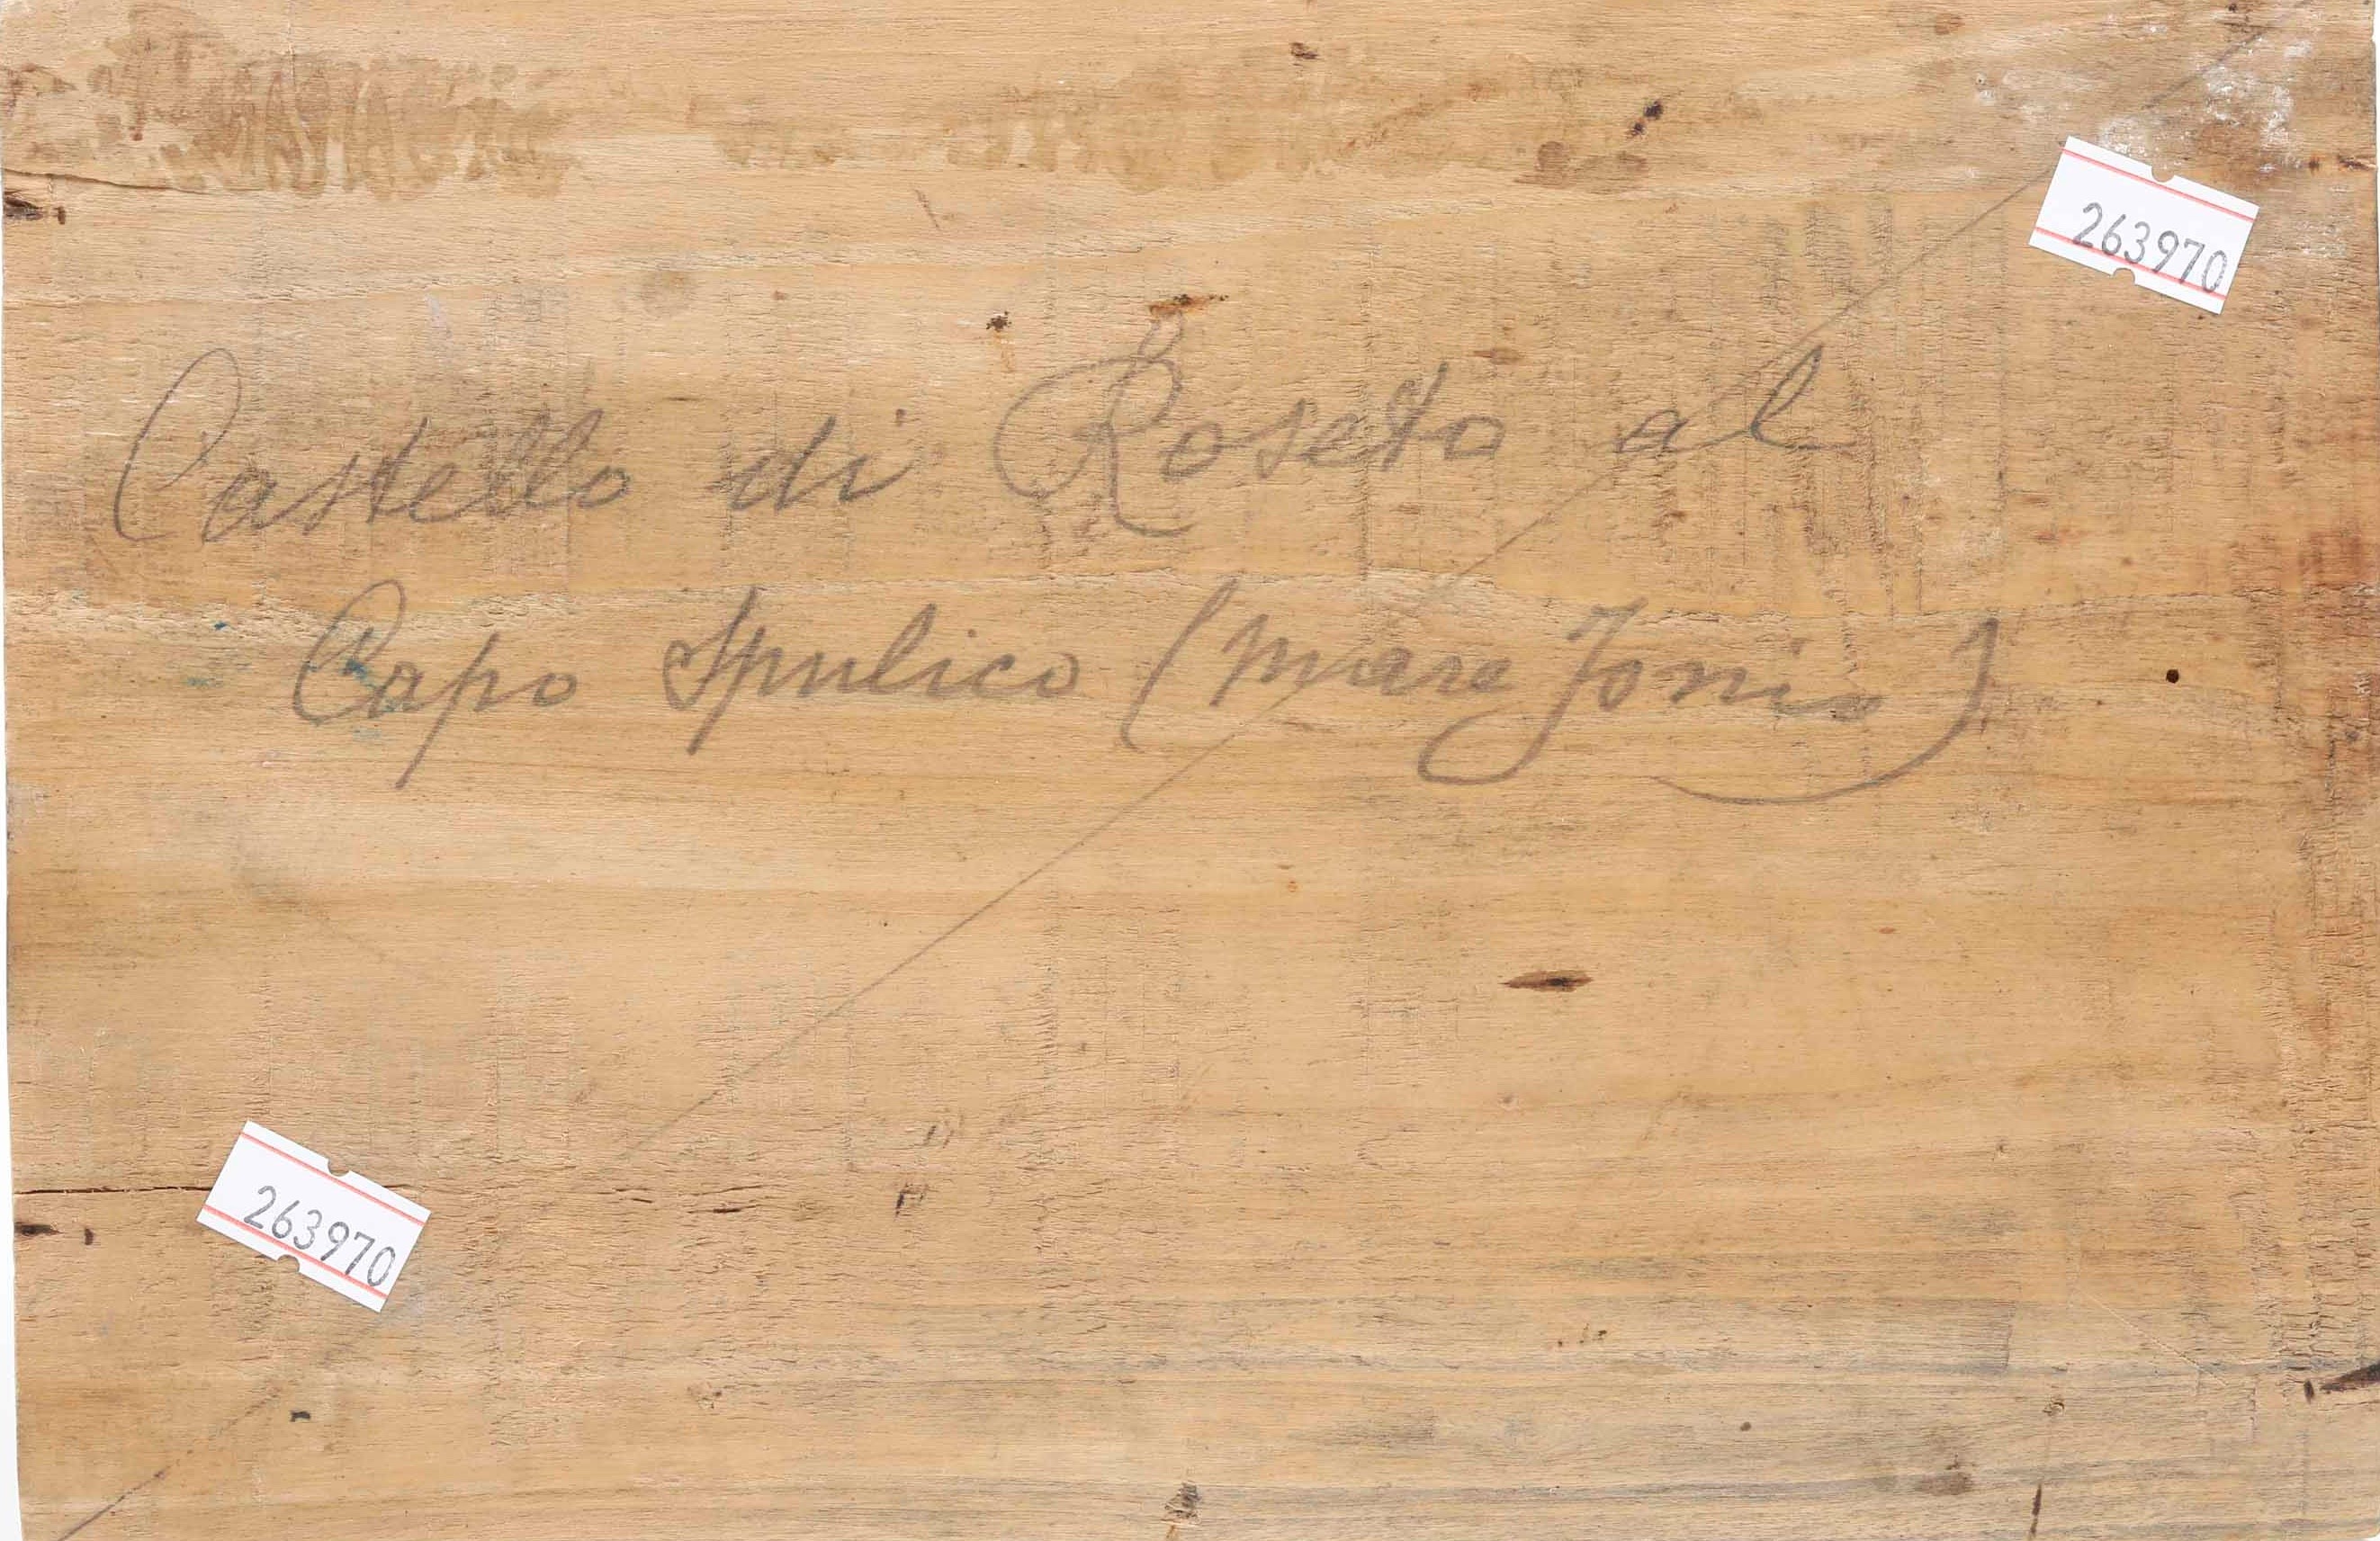 263970
Castello di Roseto al
Capo Spulico (Mare Jonio)
263970